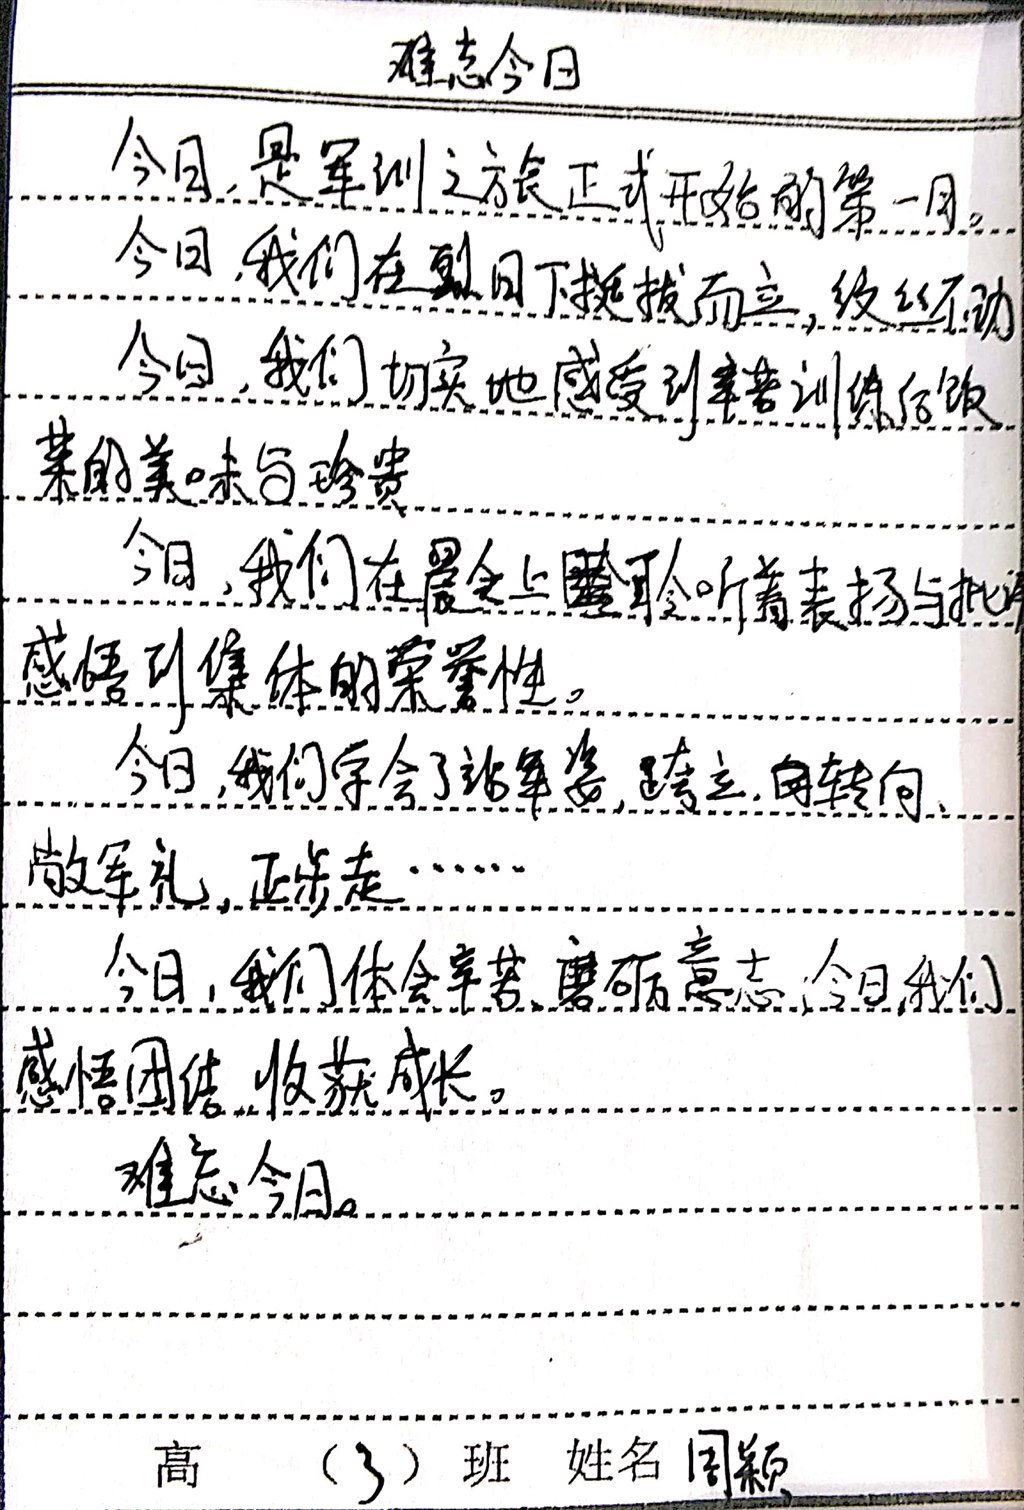 难忘今日
今日,是军训之旅正式开始的第一日。
今日,我们在烈日下挺拔而立,纹丝不动
今日,我们切实地感受到辛苦训练后饭
菜的美味与珍贵
今日,我们在晨会上聆听着表扬与批评
感悟到集体的荣誉性。
今日,我们学会了站军姿,跨立.转向、
敬军礼,正步走……
今日,我们体会辛苦、磨砺意志,今日,我们
感悟团结,收获成长。
难忘今日。
高 (3) 班 姓名 周颖